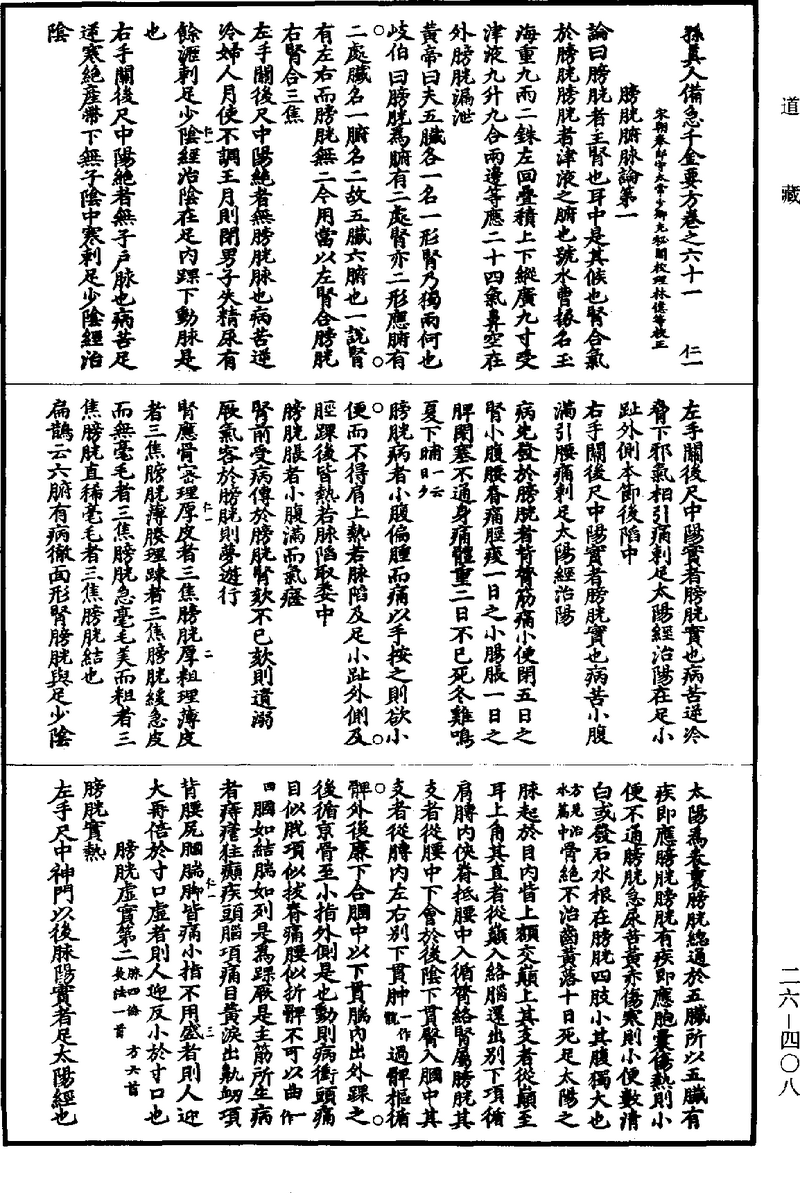 道藏
孫真人備急千金要方卷之六十一 仁一
宋朝奉郎守太常少卿充秘閣校理林億等校正
膀胱腑脉論第一
論曰膀胱者主腎也耳中是其候也腎合氣
於膀胱膀胱者津液之腑也號水曹掾名玉
海重九兩二銖左回疊積上下縱廣九寸受
津液九升九合兩邊等應二十四氣鼻空在
外膀胱漏泄
黃帝曰夫五臟各一名一形腎乃獨兩何也
岐伯曰膀胱為腑有二處腎亦二形應腑有
二處臟名一腑名二故五臟六腑也一說腎
有左右而膀胱無二今用當以左腎合膀胱
右腎合三焦
左手關後尺中陽絕者無膀胱脉也病苦逆
冷婦人月使不調王月則閉男子失精尿有
餘瀝刺足少陰經治陰在足內踝下動脉是
也
右手關後尺中陽絕者無子戶脉也病苦足
逆寒絕產帶下無子陰中寒刺足少陰經治
陰
左手關後尺中陽實者膀胱實也病苦逆冷
脅下邪氣相引痛刺足太陽經治陽在足小
趾外側本節後陷中
右手關後尺中陽實者膀胱實也病苦小腹
滿引腰痛刺足太陽經治陽
病先發於膀胱者背膂筋痛小便閉五日之
腎小腹腰脊痛脛痠一日之小腸脹一日之
脾閉塞不通身痛體重二日不已死冬雞鳴
夏下晡一云日夕
膀胱病者小腹偏腫而痛以手按之則欲小
便而不得肩上熱若脉陷及足小趾外側及
脛踝後皆熱若脉陷取委中
膀胱脹者小腹滿而氣癃
腎前受病傳於膀胱腎欬不已欬則遺溺
厥氣客於膀胱則夢遊行
腎應骨密理厚皮者三焦膀胱厚粗理薄皮
者三焦膀胱薄腠理踈者三焦膀胱緩急皮
而無毫毛者三焦膀胱急毫毛美而粗者三
焦膀胱直稀毫毛者三焦膀胱結也
扁鵲云六腑有病徹面形腎膀胱與足少陰
太陽為表裏膀胱總通於五臟所以五臟有
疾即應膀胱膀胱有疾即應胞囊傷熱則小
便不通膀胱急尿苦黃赤傷寒則小便數清
白或發石水根在膀胱四肢小其腹獨大也
方見治水篇中骨絕不治齒黃落十日死足太陽之
脉起於目內眥上額交巔上其支者從巔至
耳上角其直者從巔入絡腦還出別下項循
肩膊內俠脊抵腰中入循膂絡腎屬膀胱其
支者從腰中下會於後陰下貫臀入膕中其
支者從膊內左右別下貫胂一作髖過髀樞循
髀外後廉下合膕中以下貫腨內出外踝之
後循京骨至小指外側是也動則病衝頭痛
目似脫項似拔脊痛腰似折髀不可以曲一作
回膕如結腨如列是為踝厥是主筋所生病
者痔瘧狂癲疾頭腦項痛目黃淚出鼽衂項
背腰尻膕腨脚皆痛小指不用盛者則人迎
大再倍於寸口虛者則人迎反小於寸口也
膀胱虛實第二 脉四條 方六首 灸法一首
膀胱實熱
左手尺中神門以後脉陽實者足太陽經也
二六—四〇八